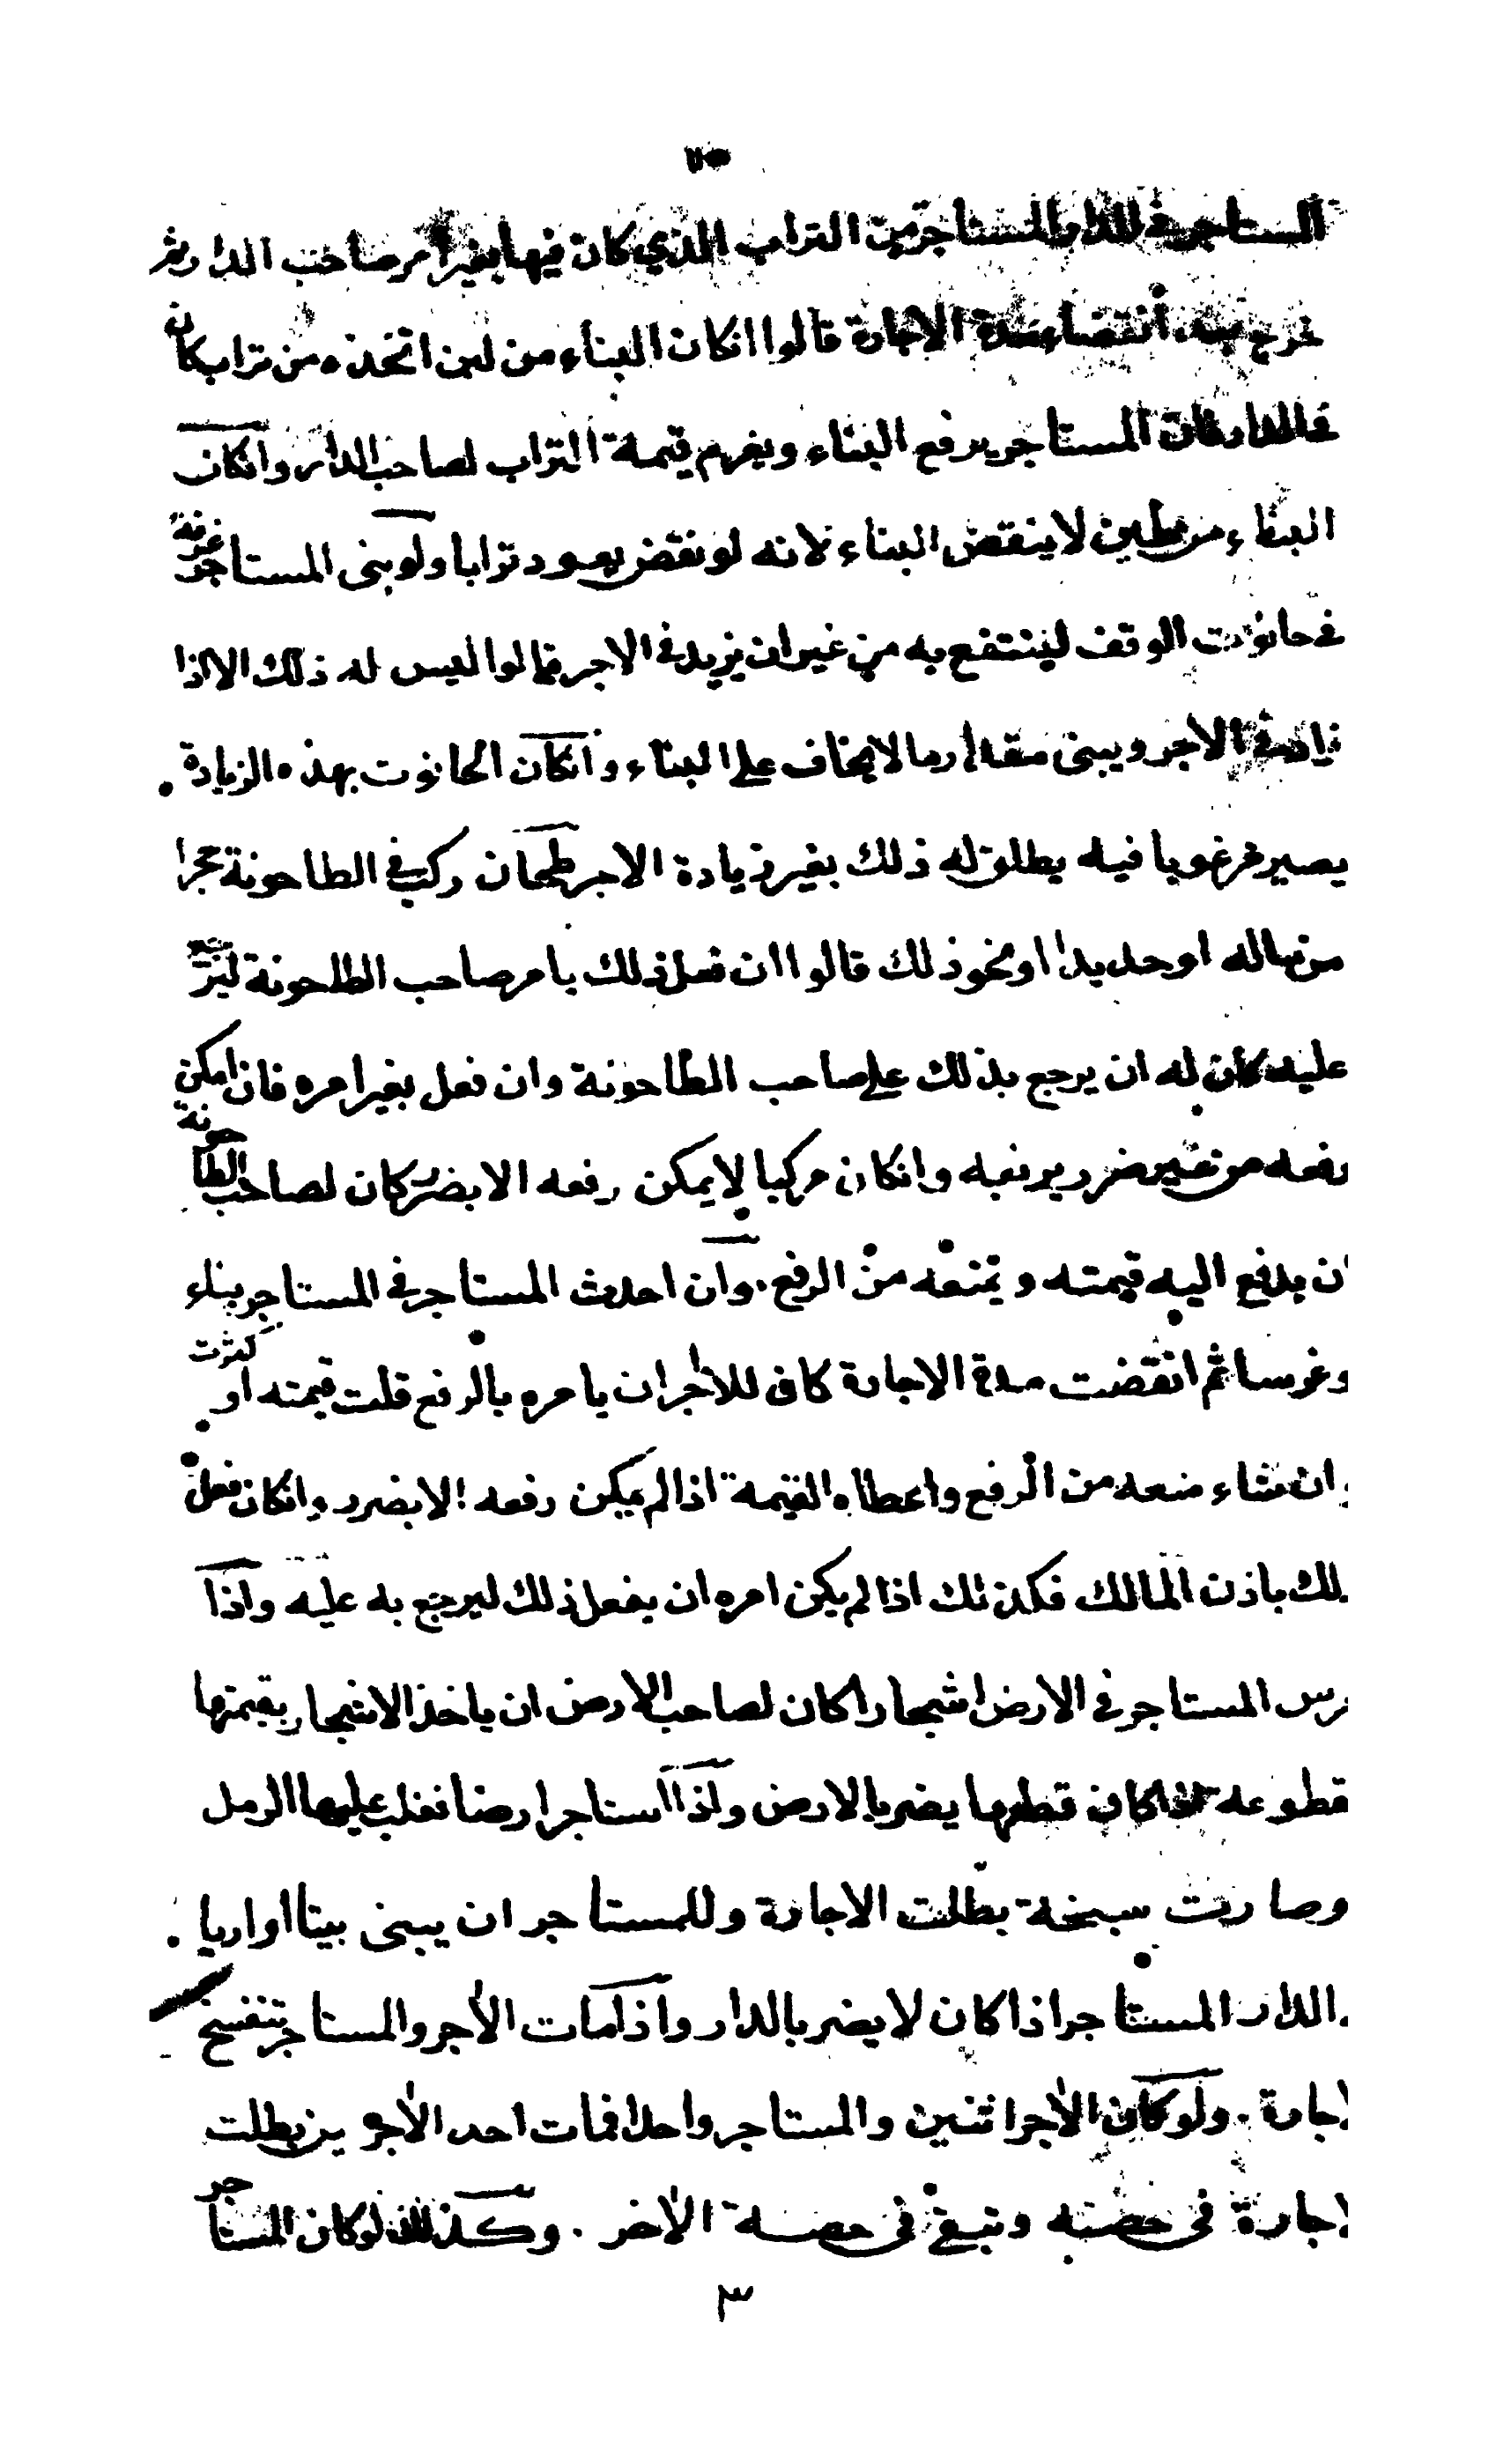 المستاجر في الدار المستاجرة من التراب الذي كان فيها بغير امر صاحب الدار ثم
خرج بعد انقضاء مدة الاجارة قالوا انكان البناء من لبن اتخذه من تراب كان
في الدار فان المستاجر يرفع البناء ويغرم قيمة التراب لصاحب الدار وانكان
البناء من طين لا ينقض البناء لانه لو نقض يعود ترابا ولو بنى المستاجر غرفة
في حانوت الوقف لينتفع به من غير ان يزيد في الاجر قالوا ليس له ذلك الا اذا
زاد في الاجر ويبنى مقدار ما لا يخاف على البناء وانكان الحانوت بهذه الزيادة
يصير مرغوبا فيه يطلق له ذلك بغير زيادة الاجر طحان ركب في الطاحونة حجرا
من ماله او حديدا او نحو ذلك قالوا ان فعل ذلك بامر صاحب الطاحونة ليرجع
عليه كان له ان يرجع بذلك على صاحب الطاحونة وان فعل بغير امره فان امكن
رفعه من غير ضرر يرفعه وانكان مركبا لا يمكن رفعه الا بضرر كان لصاحب الطاحونة
ان يدفع اليه قيمته ويمنعه من الرفع. وان احدث المستاجر في المستاجر بناء
وغرسا ثم انقضت مدة الاجارة كان للآجر ان يامره بالرفع قلت قيمته او كثرت
وان شاء منعه من الرفع واعطاه القيمة اذا لم يمكن رفعه الا بضرر وانكان فعل
لك باذن المالك فكذلك اذا لم يكن امره ان يفعل ذلك ليرجع به عليه واذا
رس المستاجر في الارض اشجارا كان لصاحب الارض ان ياخذ الاشجار بقيمتها
قطوعة اذا كان قطعها يضر بالارض واذا استاجر ارضا فغلب عليها الرمل
وصارت سبخة بطلت الاجارة وللمستاجر ان يبنى بيتا او اريا
الدار المستاجر اذا كان لا يضر بالدار واذا مات الآجر والمستاجر تنفسخ
لاجارة. ولو كان الآجر اثنين والمستاجر واحدا فمات احد الآجرين بطلت
لاجارة في حصته وتبقى في حصة الآخر. وكذلك لو كان المستاجر
٣